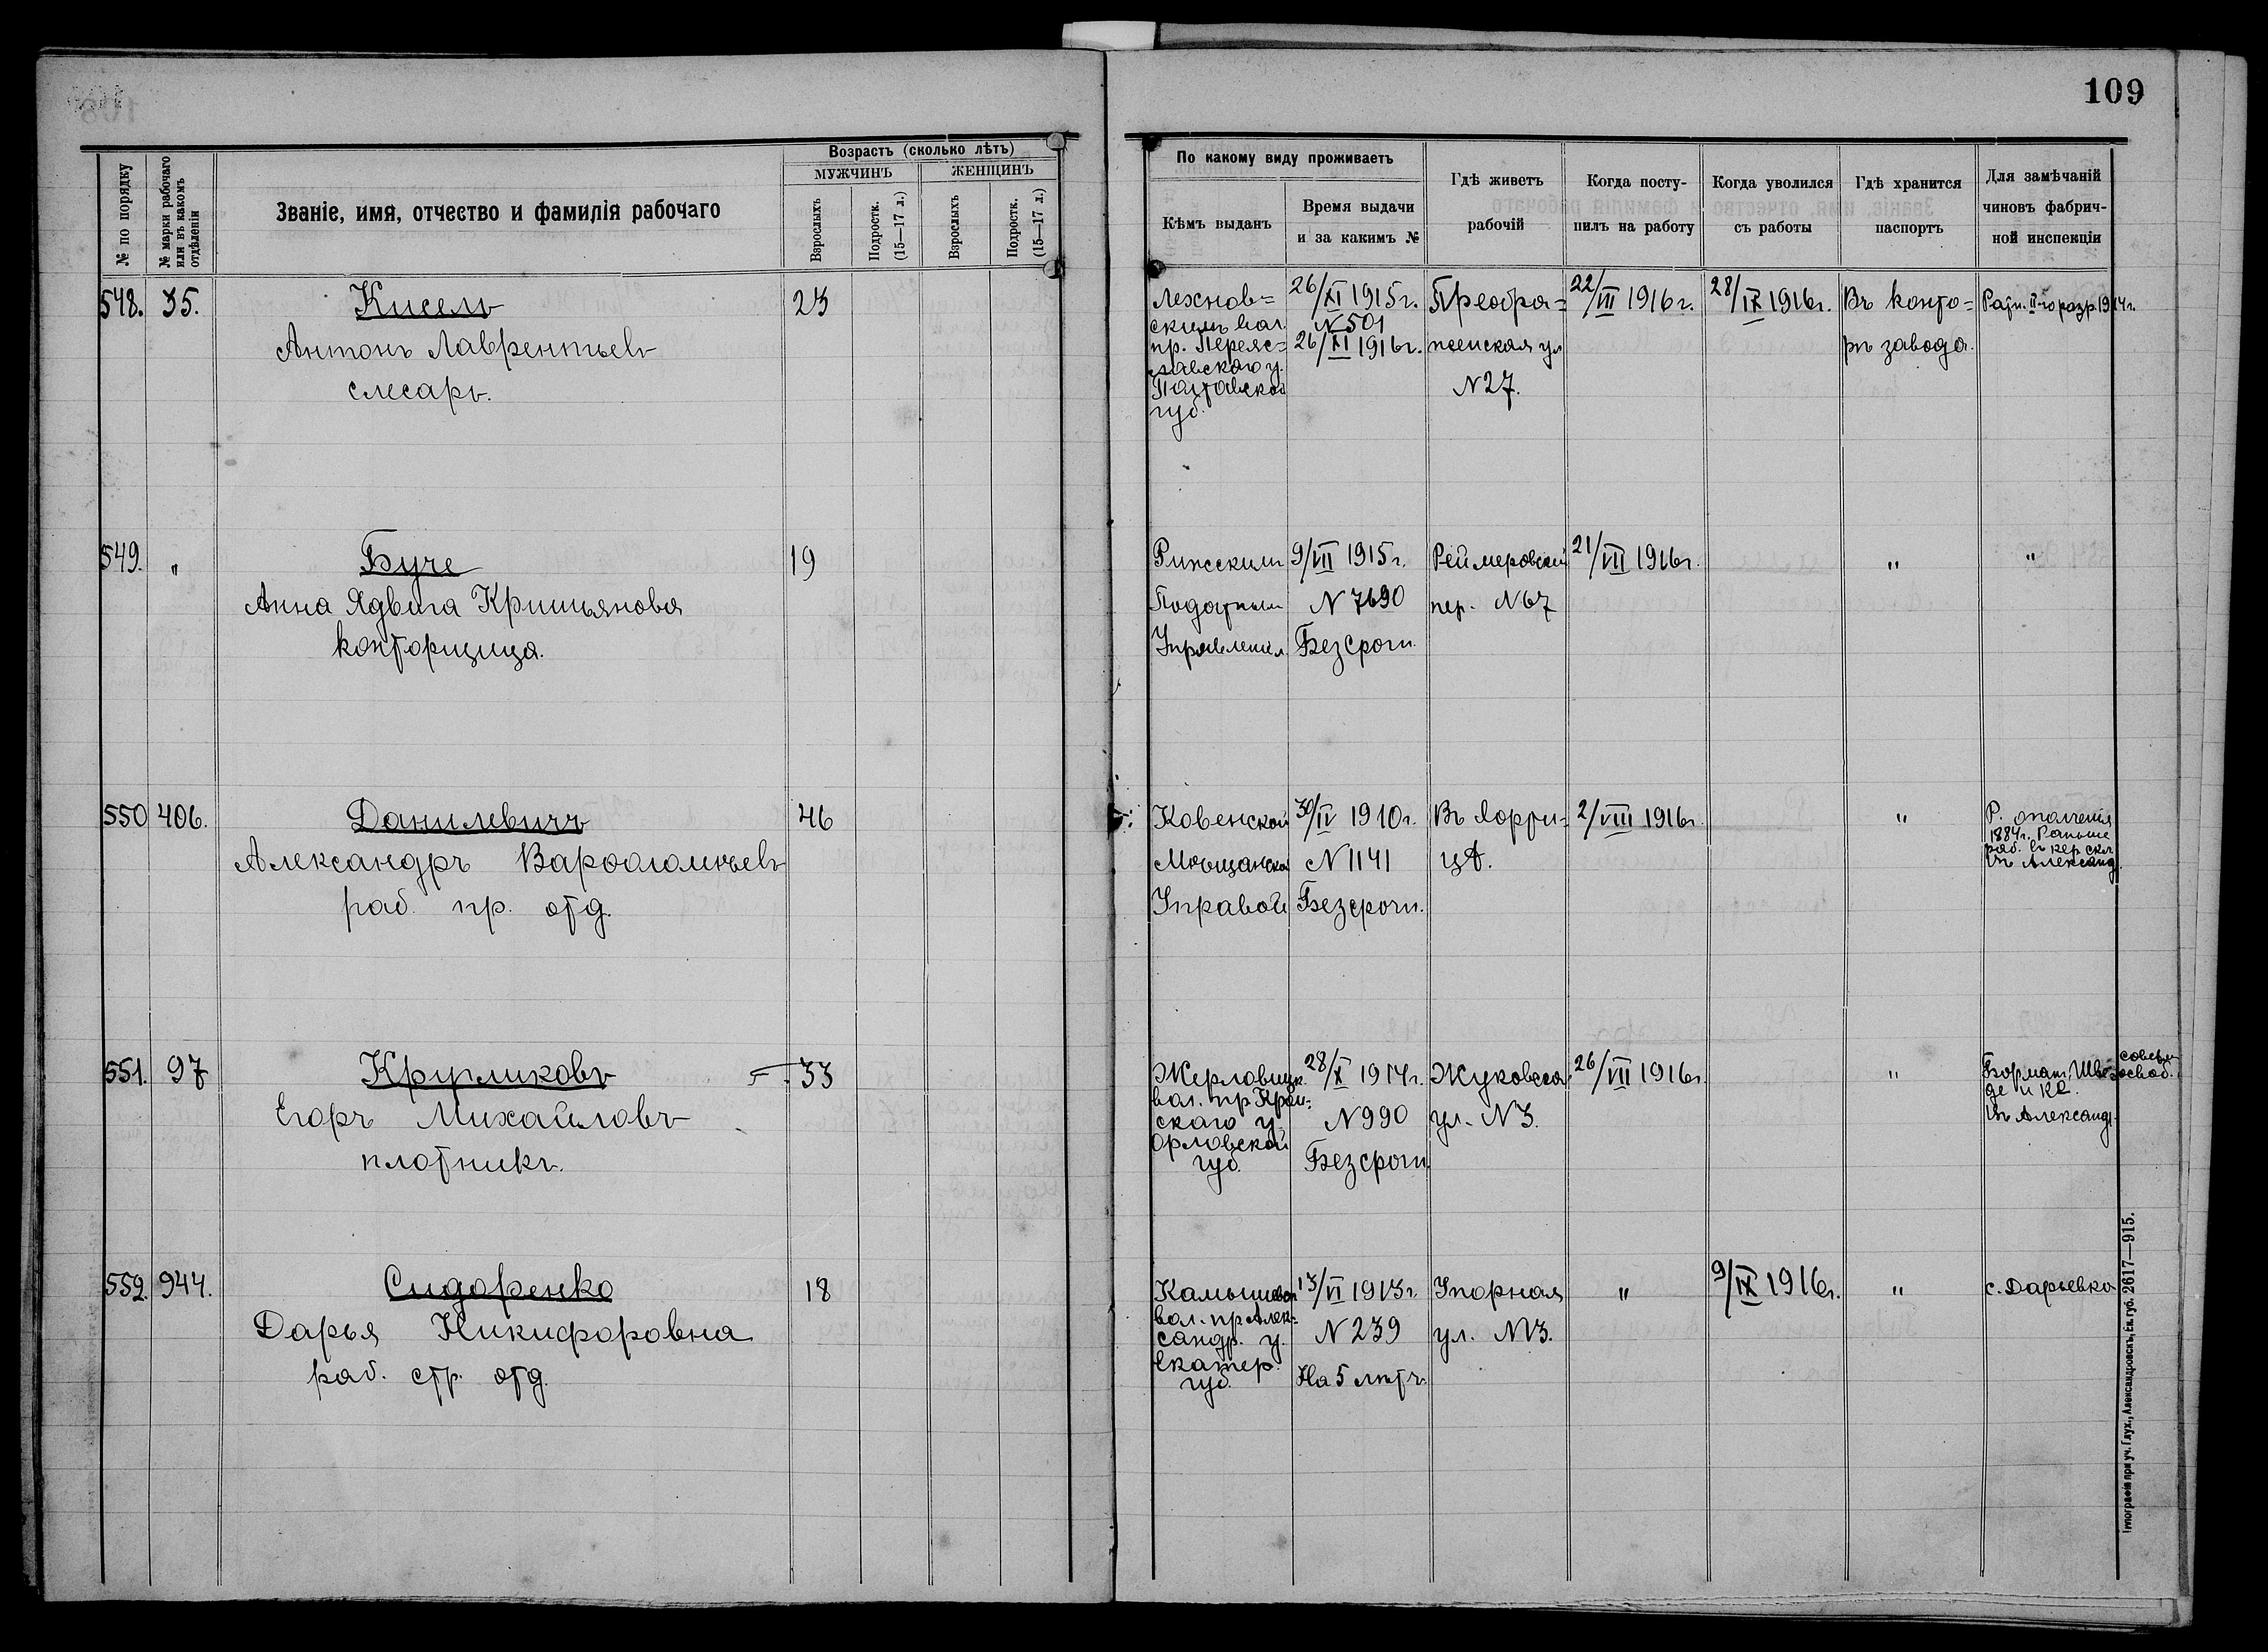 109
№ по порядку
№ марки рабочаго или въ какомъ отдѣленіи
Званіе, имя, отчество и фамилія рабочаго
Возрастъ (сколько лѣтъ)
МУЖЧИНЪ
ЖЕНЩИНЪ
Взрослыхъ
Подростк. (15—17 л.)
Взрослыхъ
Подростк. (15—17 л.)
По какому виду проживаетъ
Кѣмъ выданъ
Время выдачи
и за какимъ №
Гдѣ живетъ
рабочій
Когда посту-
пилъ на работу
Когда уволился
съ работы
Гдѣ хранится
паспортъ
Для замѣчаній
чиновъ фабрич-
ной инспекціи
548. 35. Кисель 23
Антонъ Лаврентьевъ
слесарь.
Лехнов=
скимъ вол.
пр. Переяс=
лавскаго у.
Полтавской
губ.
26/XI 1915 г.
N 501
26/XI 1916 г.
Преобра=
женская ул
N 27.
22/VII 1916 г.
28/IX 1916 г.
Въ конто=
рѣ завода.
Ратн. II-го разр. 1914 г.
549. " Буче 19
Анна Ядвига Кришьянова
конторщица.
Рижскимъ
Податнымъ
Управленіем
9/VII 1915 г.
N 7690
Безсрочн.
Реймеровскій
пер. N 67
21/VII 1916 г.
"
"
550 406. Данилевичъ 46
Александръ Варфоломѣевъ
раб. пр. отд.
Ковенской
Мѣщанской
Управой
30/IV 1910 г.
N 1141
Безсрочн.
Въ Хорти-
цѣ.
2/VIII 1916 г.
"
Р. ополченія
1884 г. Раньше
раб. въ кер. скл.
въ Александр.
551. 97 Кругликовъ 33
Егоръ Михайловъ
плотникъ.
вол. пр
скаго у.
Орловской
губ.
28/X 1914 г.
N 990
Безсрочн.
Жуковская
ул. N 3.
26/VII 1916 г.
"
совсѣм
освоб.
де и Кº
въ Александр.
552. 944. Сидоренко 18
Дарья Никифоровна
раб. стр. отд.
Камышеван
вол. пр Алек=
сандр. у.
Екатер.
губ.
13/VI 1913 г.
N 239
На 5 лѣтъ.
Упорная
ул. N 13.
"
9/IX 1916 г.
"
с. Дарьевка
Типографія при уч. Глух., Александровскъ, Ек. губ. 2617—915.